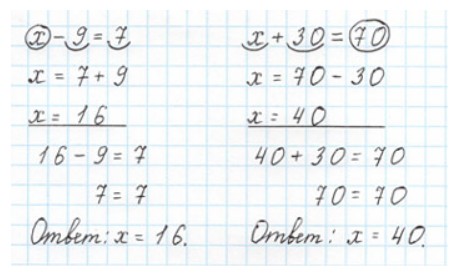 x - 9 = 7
x = 7 + 9
x = 16
16 - 9 = 7
7 = 7
Ответ: x = 16.
x + 30 = 70
x = 70 - 30
x = 40
40 + 30 = 70
70 = 70
Ответ: x = 40.